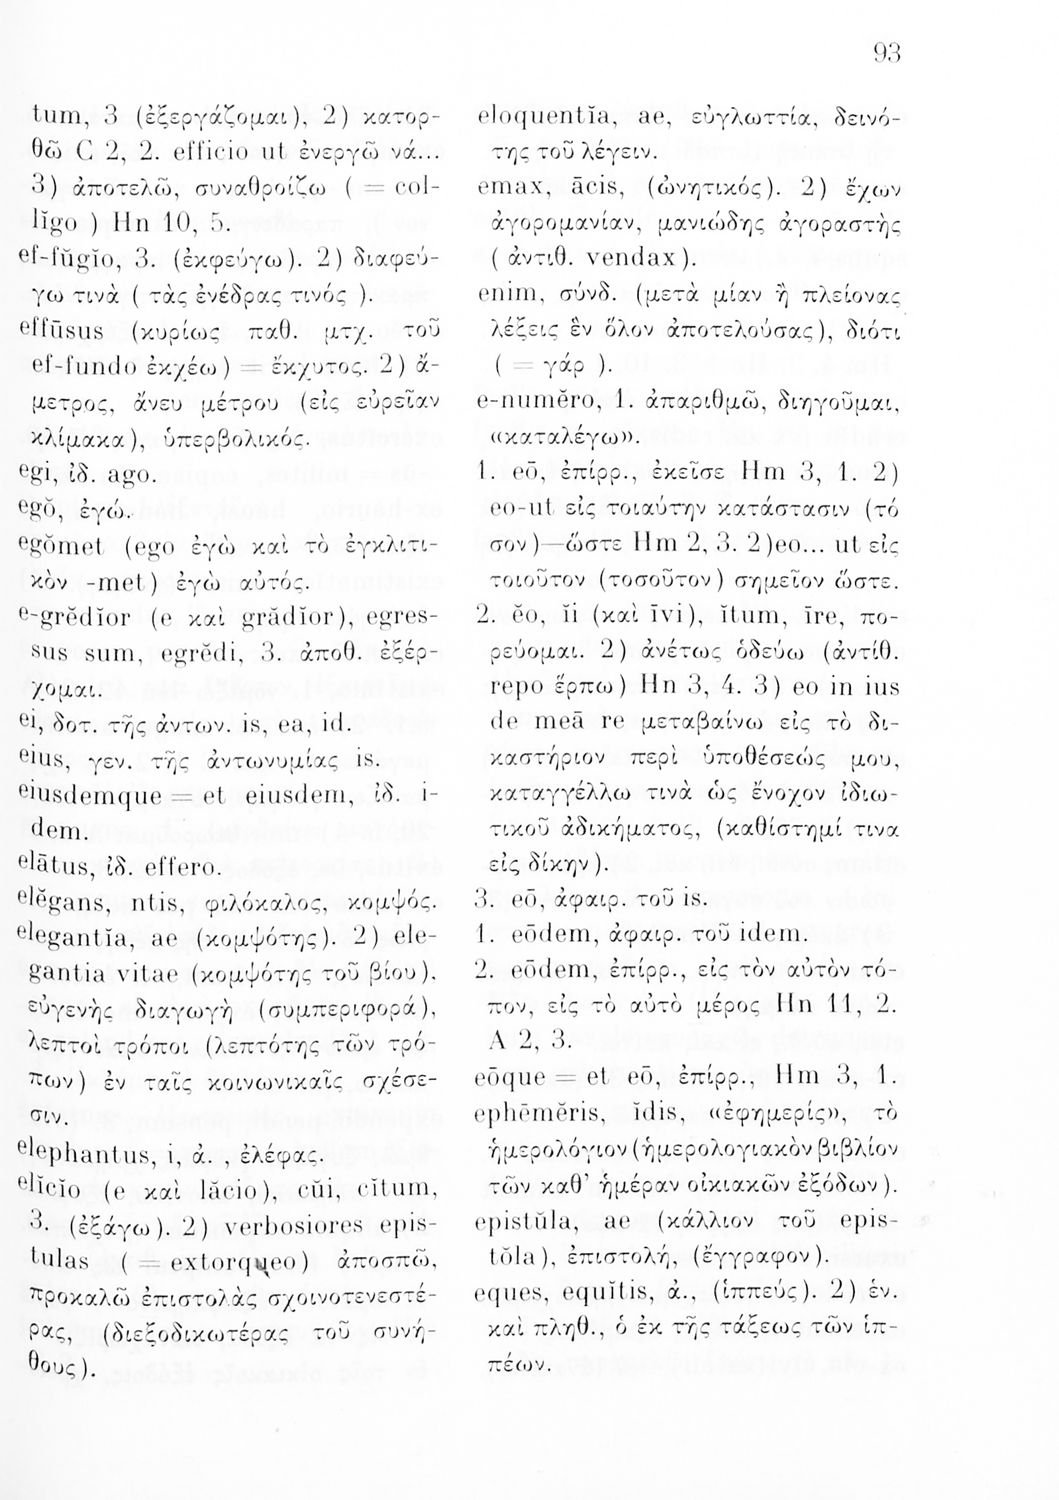 93
tum, 3 (ἐξεργάζομαι), 2) κατορ-
θῶ C 2, 2. efficio ut ἐνεργῶ νά...
3) ἀποτελῶ, συναθροίζω ( = col-
lĭgo ) Hn 10, 5.
ef-fŭgĭo, 3. (ἐκφεύγω). 2) διαφεύ-
γω τινὰ ( τὰς ἐνέδρας τινός ).
effūsus (κυρίως παθ. μτχ. τοῦ
ef-fundo ἐκχέω) = ἔκχυτος. 2) ἄ-
μετρος, ἄνευ μέτρου (εἰς εὐρεῖαν
κλίμακα), ὑπερβολικός.
egi, ἰδ. ago.
egŏ, ἐγώ.
egŏmet (ego ἐγὼ καὶ τὸ ἐγκλιτι-
κὸν -met) ἐγὼ αὐτός.
e-grĕdĭor (e καὶ grădĭor), egres-
sus sum, egrĕdi, 3. ἀποθ. ἐξέρ-
χομαι.
ei, δοτ. τῆς ἀντων. is, ea, id.
eius, γεν. τῆς ἀντωνυμίας is.
eiusdemque = et eiusdem, ἰδ. i-
dem.
elātus, ἰδ. effero.
elĕgans, ntis, φιλόκαλος, κομψός.
elegantĭa, ae (κομψότης). 2) ele-
gantia vitae (κομψότης τοῦ βίου),
εὐγενὴς διαγωγὴ (συμπεριφορά),
λεπτοὶ τρόποι (λεπτότης τῶν τρό-
πων) ἐν ταῖς κοινωνικαῖς σχέσε-
σιν.
elephantus, i, ἀ. , ἐλέφας.
elĭcĭo (e καὶ lăcio), cŭi, cĭtum,
3. (ἐξάγω). 2) verbosiores epis-
tulas ( = extorqueo) ἀποσπῶ,
προκαλῶ ἐπιστολὰς σχοινοτενεστέ-
ρας, (διεξοδικωτέρας τοῦ συνή-
θους).
eloquentĭa, ae, εὐγλωττία, δεινό-
της τοῦ λέγειν.
emax, ācis, (ὠνητικός). 2) ἔχων
ἀγορομανίαν, μανιώδης ἀγοραστὴς
( ἀντιθ. vendax).
enim, σύνδ. (μετὰ μίαν ἢ πλείονας
λέξεις ἓν ὅλον ἀποτελούσας), διότι
( = γάρ ).
e-numĕro, 1. ἀπαριθμῶ, διηγοῦμαι,
«καταλέγω».
1. eō, ἐπίρρ., ἐκεῖσε Hm 3, 1. 2)
eo-ut εἰς τοιαύτην κατάστασιν (τό
σον)—ὥστε Hm 2, 3. 2)eo... ut εἰς
τοιοῦτον (τοσοῦτον) σημεῖον ὥστε.
2. ĕo, ĭi (καὶ īvi), ĭtum, īre, πο-
ρεύομαι. 2) ἀνέτως ὁδεύω (ἀντίθ.
repo ἕρπω) Hn 3, 4. 3) eo in ius
de meā re μεταβαίνω εἰς τὸ δι-
καστήριον περὶ ὑποθέσεώς μου,
καταγγέλλω τινὰ ὡς ἔνοχον ἰδιω-
τικοῦ ἀδικήματος, (καθίστημί τινα
εἰς δίκην).
3. eō, ἀφαιρ. τοῦ is.
1. eōdem, ἀφαιρ. τοῦ idem.
2. eōdem, ἐπίρρ., εἰς τὸν αὐτὸν τό-
πον, εἰς τὸ αὐτὸ μέρος Hn 11, 2.
A 2, 3.
eōque = et eō, ἐπίρρ., Hm 3, 1.
ephēmĕris, ĭdis, «ἐφημερίς», τὸ
ἡμερολόγιον (ἡμερολογιακὸν βιβλίον
τῶν καθ' ἡμέραν οἰκιακῶν ἐξόδων).
epistŭla, ae (κάλλιον τοῦ epis-
tŏla), ἐπιστολή, (ἔγγραφον).
eques, equĭtis, ἀ., (ἱππεύς). 2) ἑν.
καὶ πληθ., ὁ ἐκ τῆς τάξεως τῶν ἱπ-
πέων.